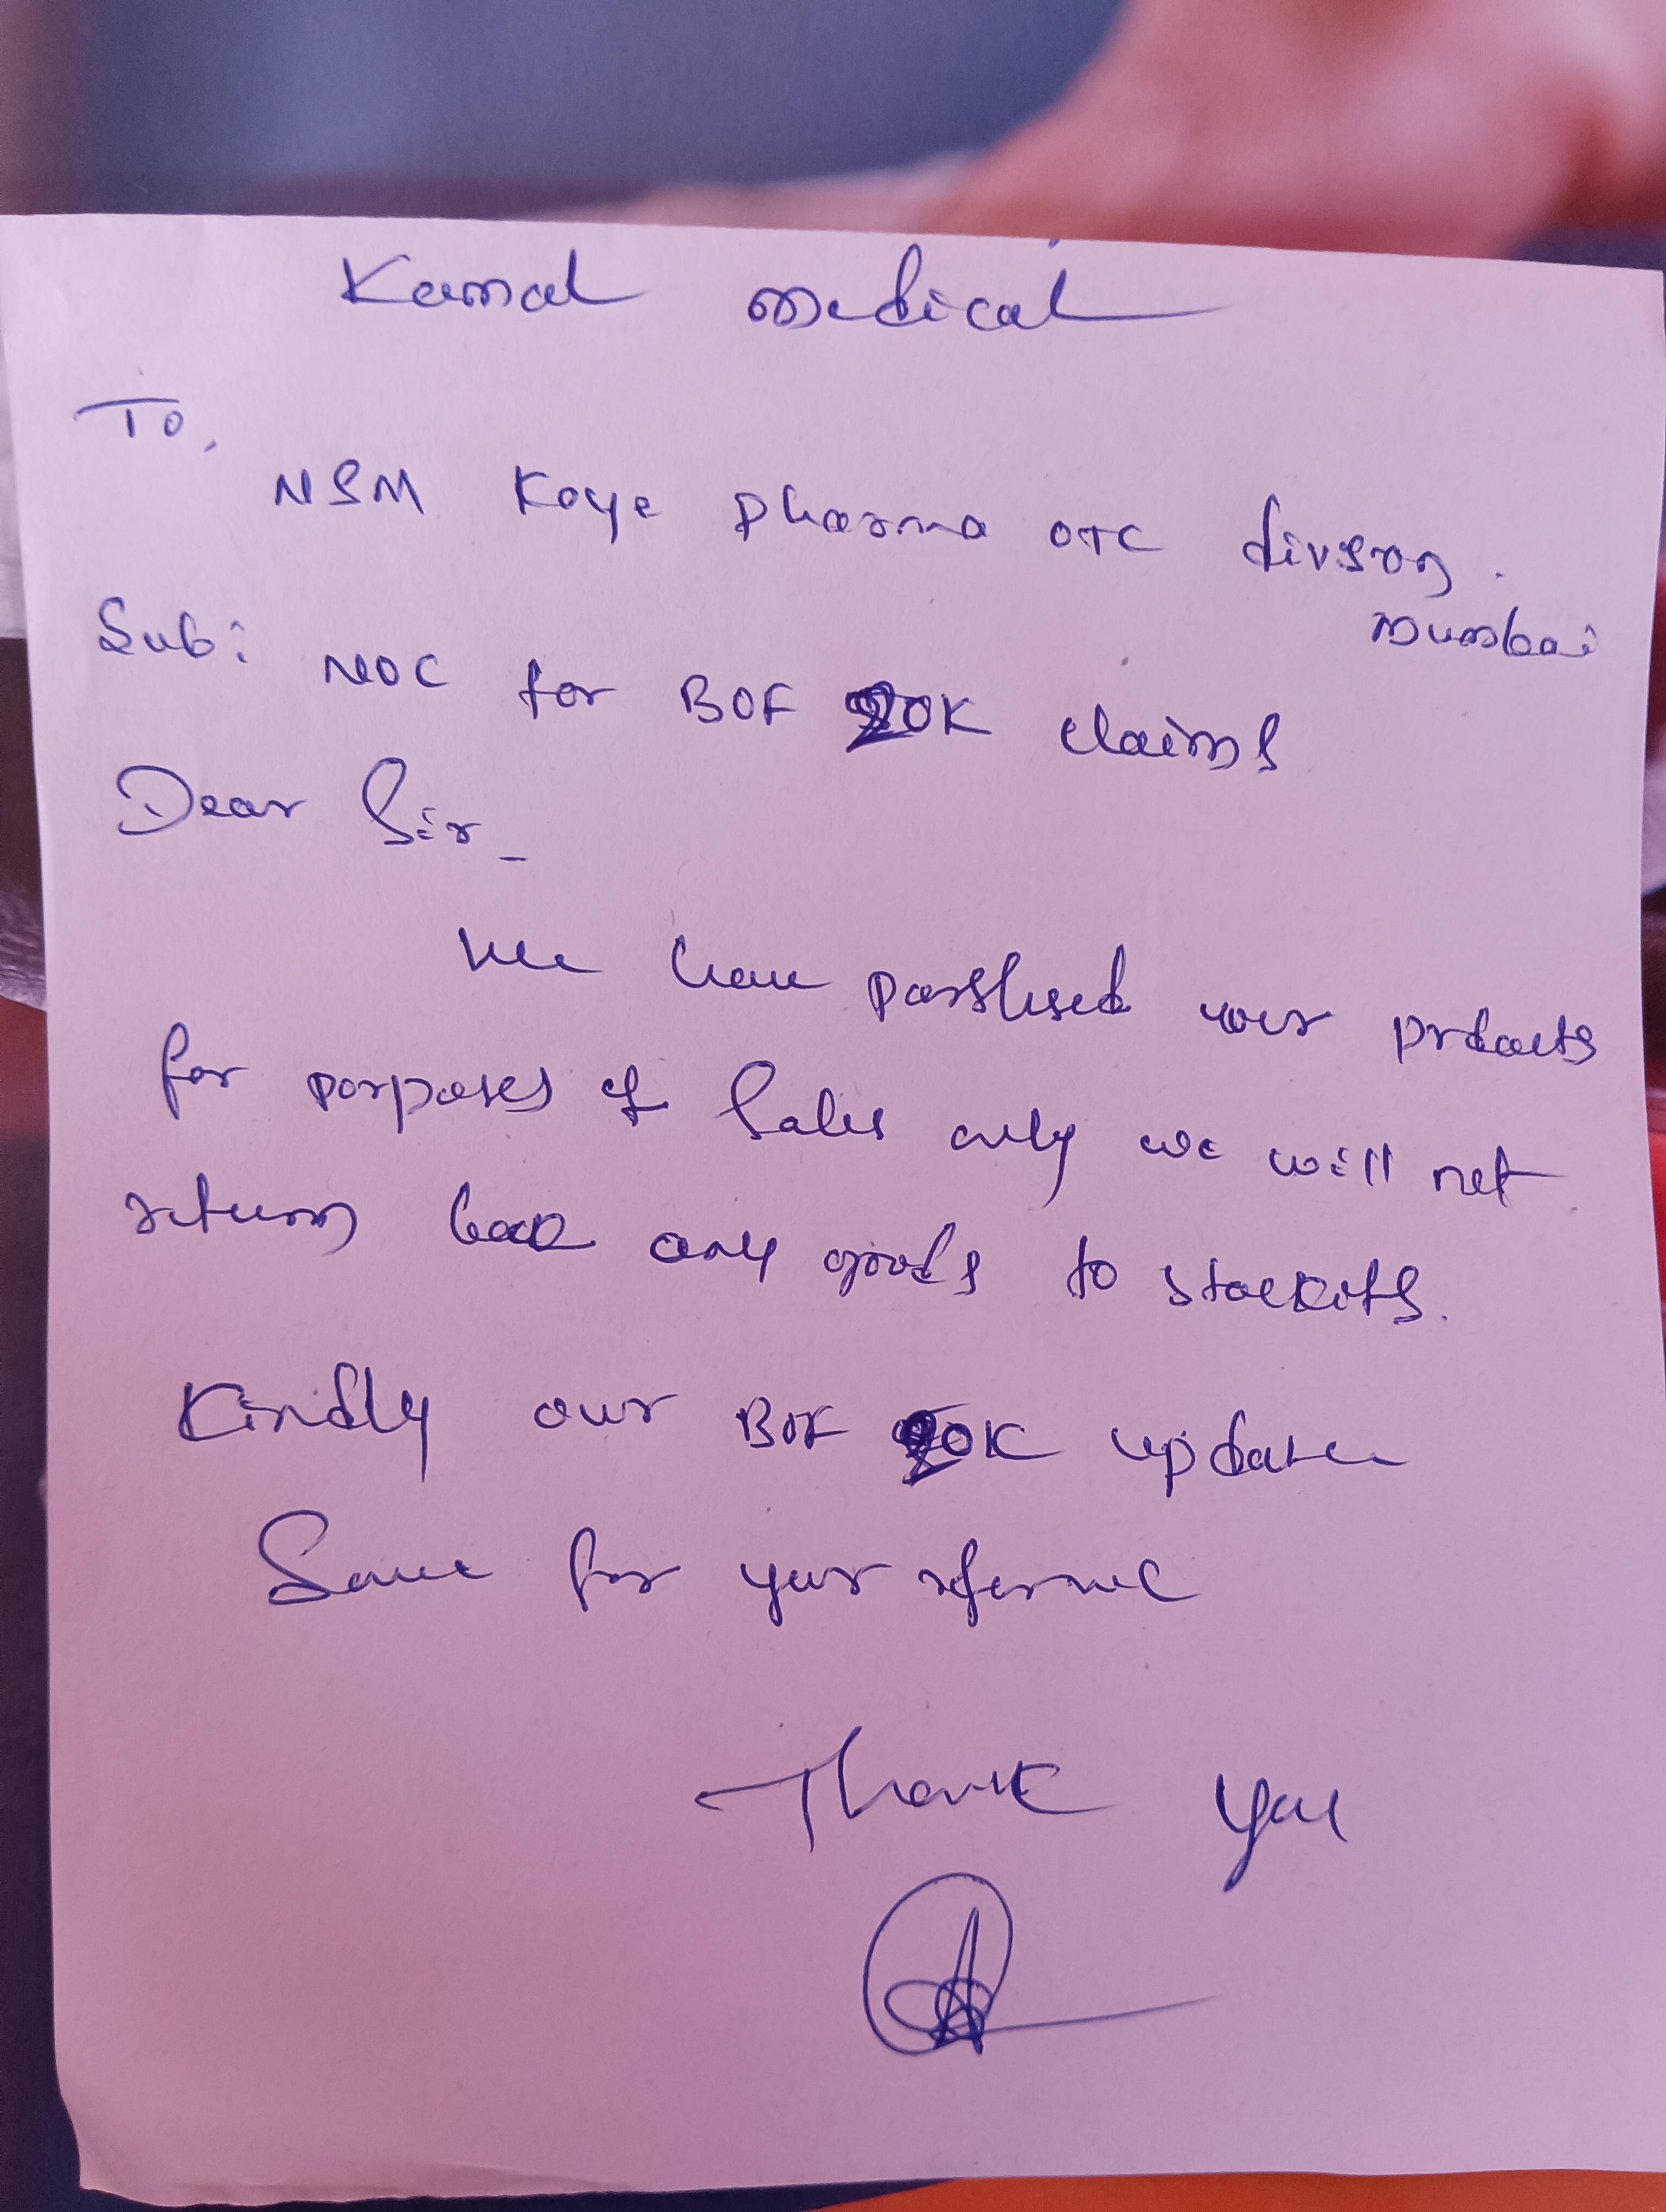 Kamal medical
To,
NSM Koye pharma OTC divson.
mumbai
Sub: NOC for BOF 20K claims
Dear Sir
We have parshesed your prdacts
for porposes of Sales only we will not
return back any goods to stockits.
Kindly our BOF 20K update
Same for your refernce
Thank you